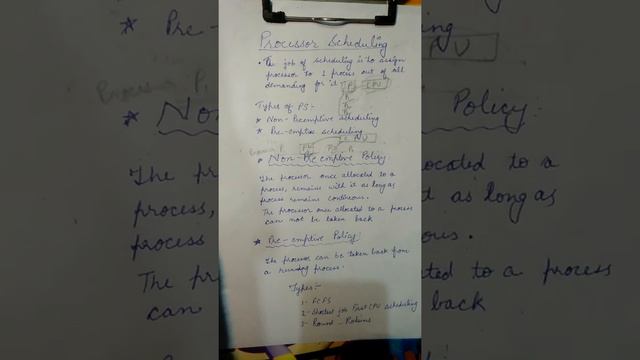 Processor Scheduling
• The job of scheduling is to assign
processor to 1 process out of all
demanding for it. P1 CPU
P2
P3
Types of PS:-
* Non-Preemptive scheduling
* Pre-emptive scheduling
* Non-Pre-emptive Policy:
The processor once allocated to a
process, remains with it as long as
process remains continous.
The processor once allocated to a process
can not be taken back
* Pre-emptive Policy:
The processor can be taken back from
a running process.
Types:-
1- FCFS
2- Shortest job First CPU scheduling
3- Round-Robins